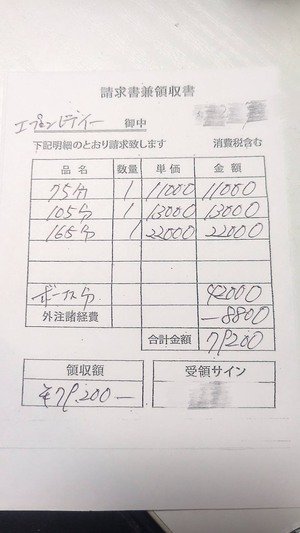 請求書兼領収書
御中
下記明細のとおり請求致します 消費税含む
品名 数量 単価 金額
75分 1 11000 11000
105分 1 13000 13000
165分 1 22000 22000
ボーナス分 42000
外注諸経費 -8800
合計金額 79200
領収額 受領サイン
¥79,200-